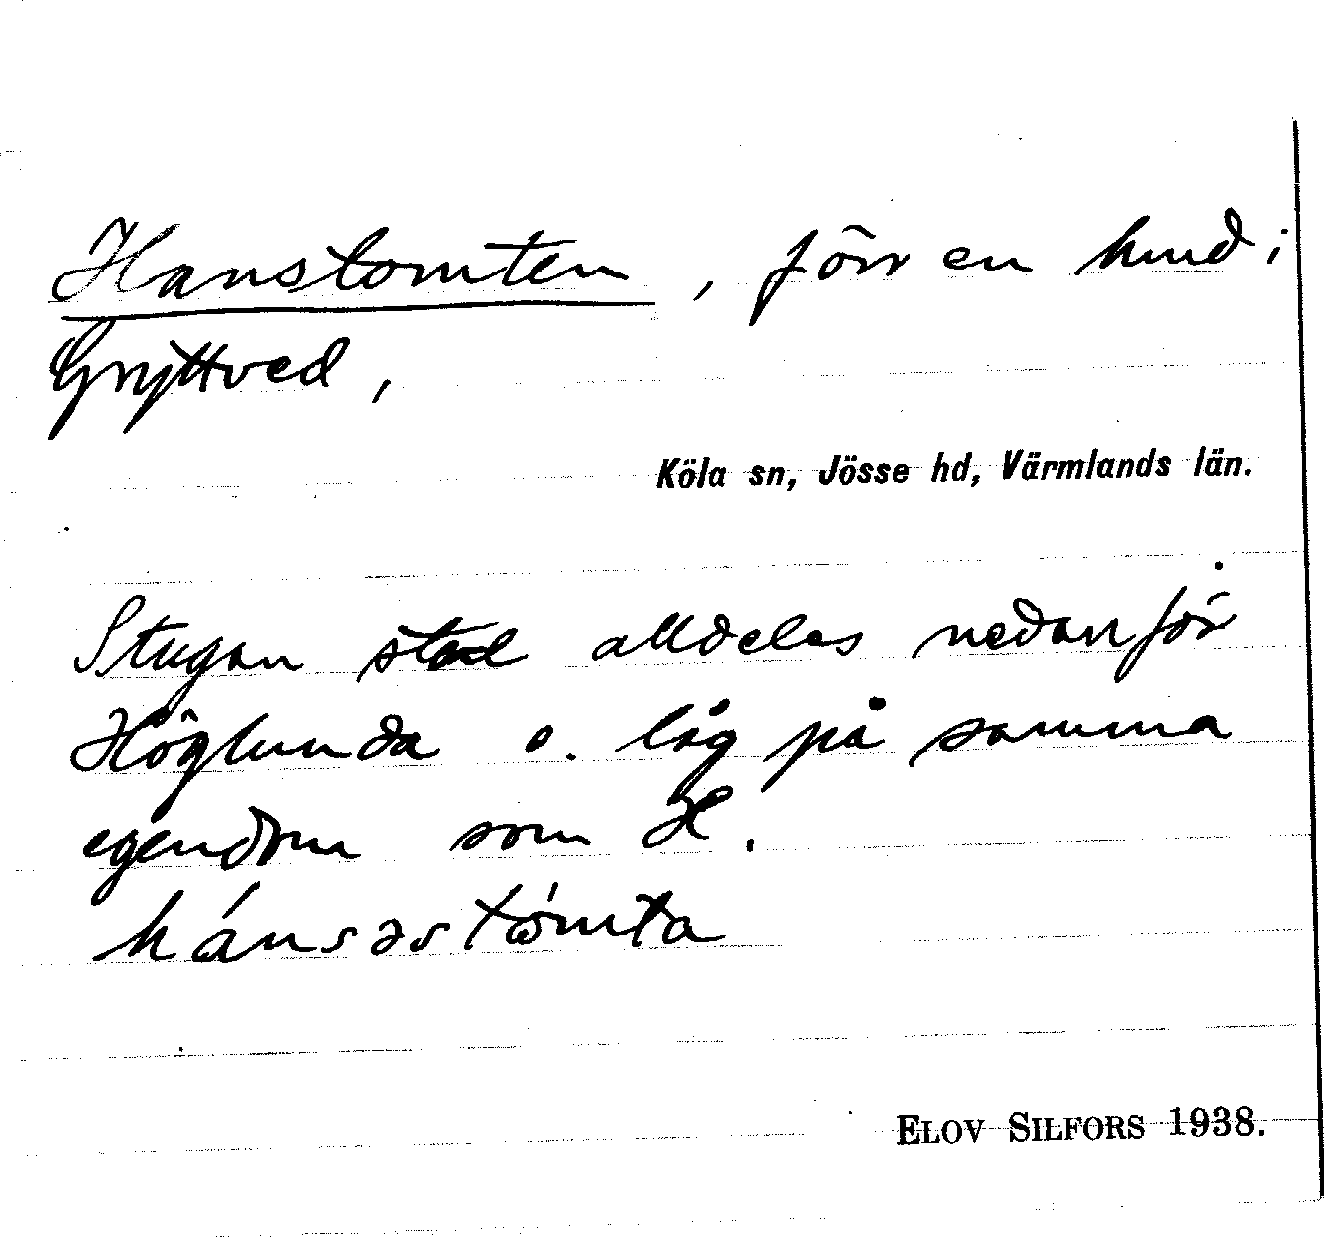 Hanstomten, förr en hmd i
Gryttved,
Köla sn, Jösse hd, Värmlands län.
Stugan stod alldeles nedanför
Höglunda o. låg på samma
egendom som H.
hánsəstómta
ELOV SILFORS 1938.